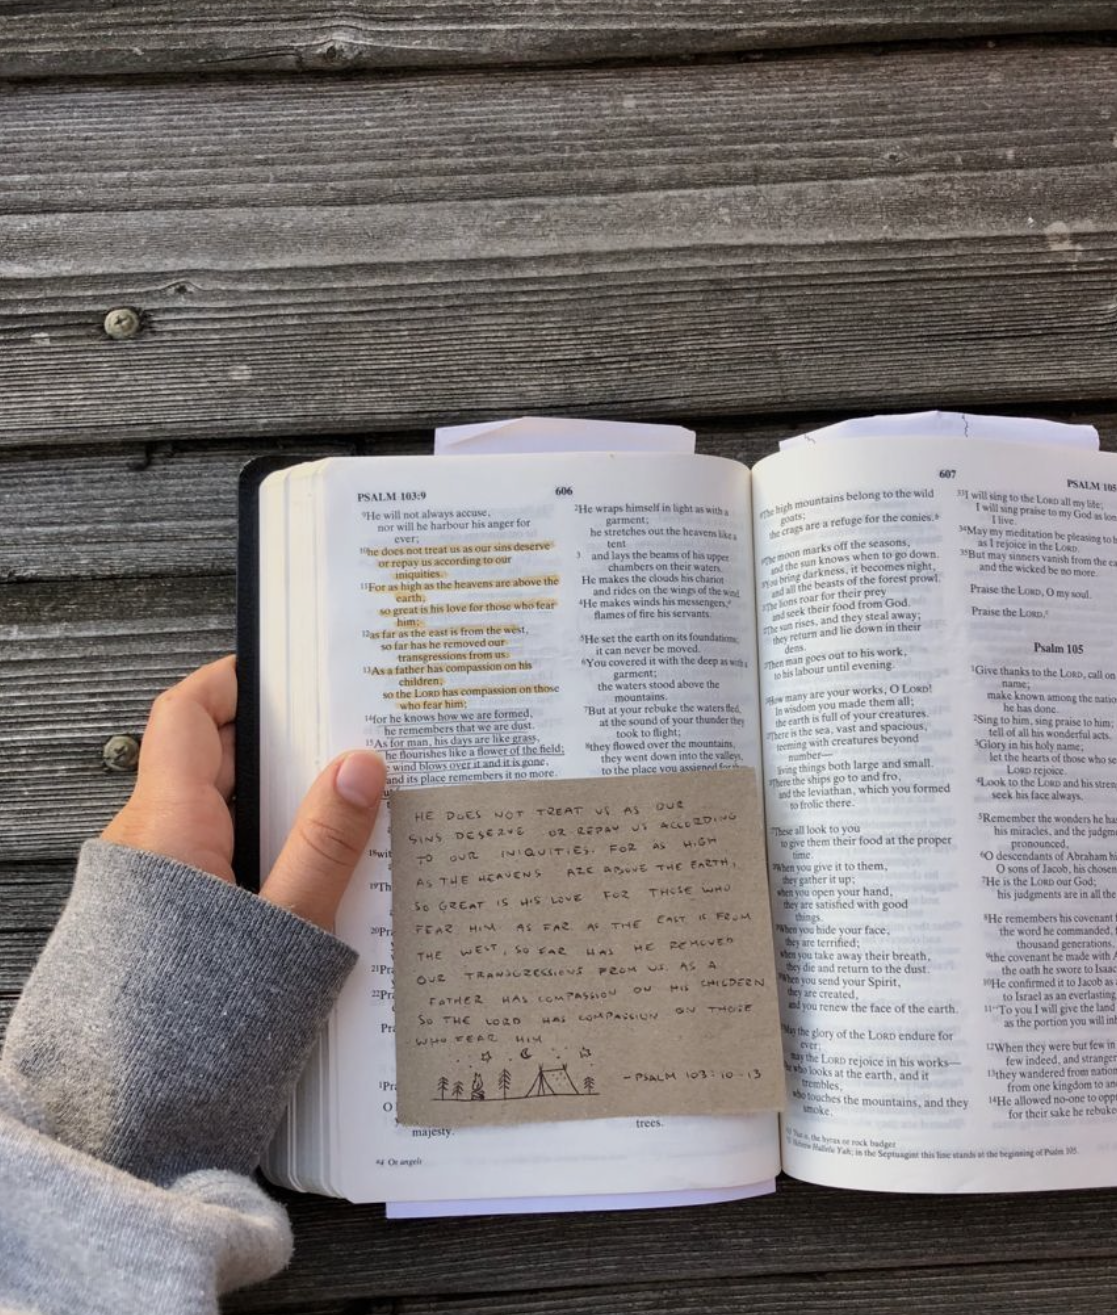 PSALM 103:9
606
⁹He will not always accuse,
nor will he harbour his anger for
ever;
¹⁰he does not treat us as our sins deserve
or repay us according to our
iniquities.
¹¹For as high as the heavens are above the
earth,
so great is his love for those who fear
him;
¹²as far as the east is from the west,
so far has he removed our
transgressions from us.
¹³As a father has compassion on his
children,
so the LORD has compassion on those
who fear him;
¹⁴for he knows how we are formed,
he remembers that we are dust.
¹⁵As for man, his days are like grass,
he flourishes like a flower of the field;
wind blows over it and it is gone,
and its place remembers it no more.
¹⁸wit
¹⁹Th
²⁰Pr
²¹Pra
²²Pr
Pra
¹Pra
O
majesty.
²He wraps himself in light as with a
garment;
he stretches out the heavens like a
tent
3 and lays the beams of his upper
chambers on their waters.
He makes the clouds his chariot
and rides on the wings of the wind.
⁴He makes winds his messengers,
flames of fire his servants.
⁵He set the earth on its foundations;
it can never be moved.
⁶You covered it with the deep as with a
garment;
the waters stood above the
mountains.
⁷But at your rebuke the waters fled,
at the sound of your thunder they
took to flight;
⁸they flowed over the mountains,
they went down into the valleys,
to the place you assigned for
trees.
HE DOES NOT TREAT US AS OUR
SINS DESERVE OR REPAY US ACCORDING
TO OUR INIQUITIES. FOR AS HIGH
AS THE HEAVENS ARE ABOVE THE EARTH,
SO GREAT IS HIS LOVE FOR THOSE WHO
FEAR HIM AS FAR AS THE EAST IS FROM
THE WEST, SO FAR HAS HE REMOVED
OUR TRANSGRESSIONS FROM US. AS A
FATHER HAS COMPASSION ON HIS CHILDREN
SO THE LORD HAS COMPASSION ON THOSE
WHO FEAR HIM
-PSALM 103:10-13
Or angels
607
PSALM 105
The high mountains belong to the wild
goats;
the crags are a refuge for the conies.
The moon marks off the seasons,
and the sun knows when to go down.
You bring darkness, it becomes night,
and all the beasts of the forest prowl.
The lions roar for their prey
and seek their food from God.
The sun rises, and they steal away;
they return and lie down in their
dens.
Then man goes out to his work,
to his labour until evening.
How many are your works, O LORD!
In wisdom you made them all;
the earth is full of your creatures.
There is the sea, vast and spacious,
teeming with creatures beyond
number—
living things both large and small.
There the ships go to and fro,
and the leviathan, which you formed
to frolic there.
These all look to you
to give them their food at the proper
time.
When you give it to them,
they gather it up;
when you open your hand,
they are satisfied with good
things.
When you hide your face,
they are terrified;
when you take away their breath,
they die and return to the dust.
When you send your Spirit,
they are created,
and you renew the face of the earth.
May the glory of the LORD endure for
ever;
may the LORD rejoice in his works—
he who looks at the earth, and it
trembles,
who touches the mountains, and they
smoke.
³³I will sing to the LORD all my life;
I will sing praise to my God as lon
I live.
³⁴May my meditation be pleasing to h
as I rejoice in the LORD.
³⁵But may sinners vanish from the ea
and the wicked be no more.
Praise the LORD, O my soul.
Praise the LORD.
Psalm 105
¹Give thanks to the LORD, call on
name;
make known among the natio
he has done.
²Sing to him, sing praise to him;
tell of all his wonderful acts.
³Glory in his holy name;
let the hearts of those who se
LORD rejoice.
⁴Look to the LORD and his stren
seek his face always.
⁵Remember the wonders he ha
his miracles, and the judgme
pronounced,
⁶O descendants of Abraham hi
O sons of Jacob, his chosen
⁷He is the LORD our God;
his judgments are in all the
⁸He remembers his covenant f
the word he commanded, f
thousand generations,
⁹the covenant he made with A
the oath he swore to Isaac
¹⁰He confirmed it to Jacob as
to Israel as an everlasting
¹¹"To you I will give the land
as the portion you will inh
¹²When they were but few in
few indeed, and stranger
¹³they wandered from nation
from one kingdom to an
¹⁴He allowed no-one to oppr
for their sake he rebuke
That is, the hyrax or rock badger
Hebrew Hallelu Yah; in the Septuagint this line stands at the beginning of Psalm 105.